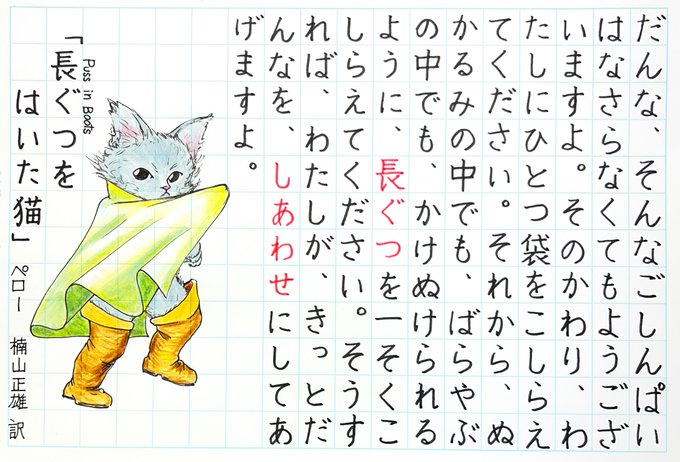 だんな、そんなごしんぱい
はなさらなくてもようござ
いますよ。そのかわり、わ
たしにひとつ袋をこしらえ
てください。それから、ぬ
かるみの中でも、ばらやぶ
の中でも、かけぬけられる
ように、長ぐつを一そくこ
しらえてください。そうす
れば、わたしが、きっとだ
んなを、しあわせにしてあ
げますよ。
Puss in Boots
「長ぐつを
はいた猫」
ペロー 楠山正雄 訳